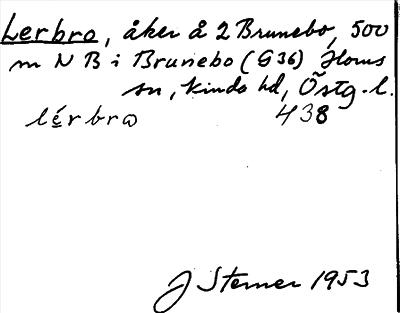 Lerbro, åker å 2 Brunebo, 500
m N B i Brunebo (G36) Horns
sn, Kinda hd, Östg.l.
lérbrɷ 438
J Sterner 1953